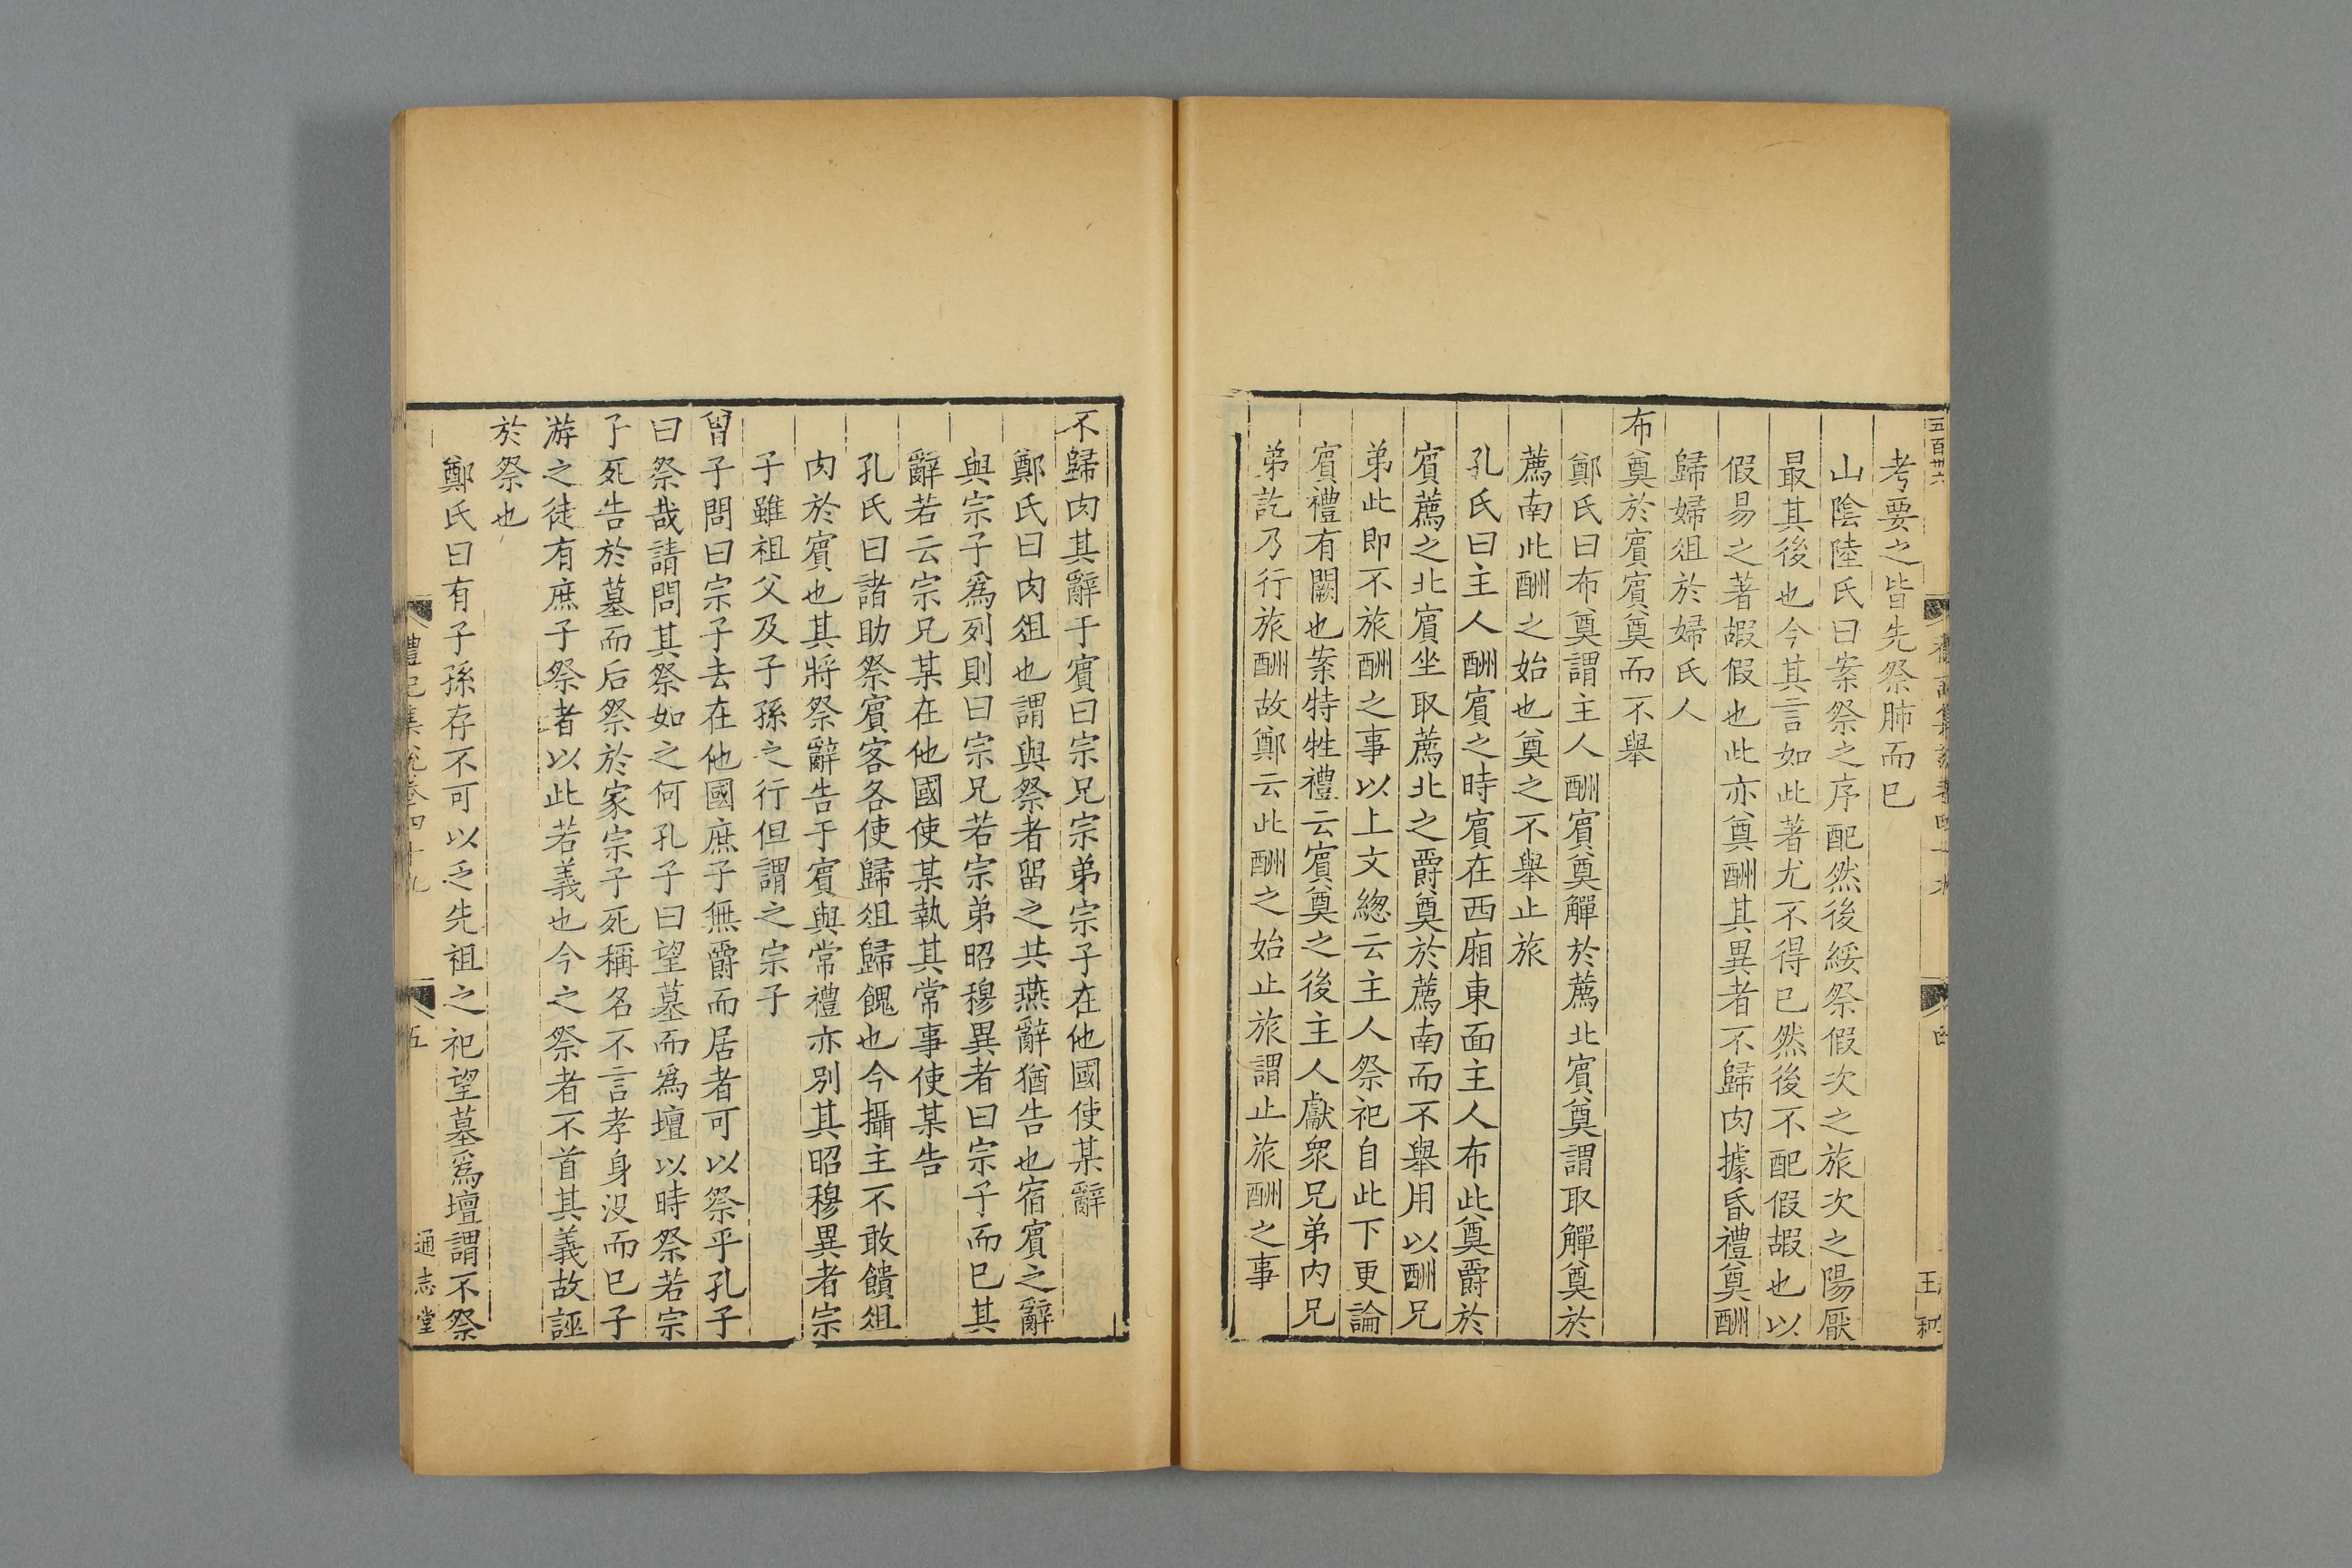 五百卅六
考要之皆先祭肺而已
山陰陸氏曰案祭之序配然後綏祭假次之旅次之陽厭
最其後也今其言如此著尤不得已然後不配假嘏也以
假易之著嘏假也此亦奠酬其異者不歸肉據昏禮奠酬
歸婦俎於婦氏人
布奠於賓賓奠而不舉
鄭氏曰布奠謂主人酬賓奠觶於薦北賓奠謂取觶奠於
薦南此酬之始也奠之不舉止旅
孔氏曰主人酬賓之時賓在西廂東面主人布此奠爵於
賓薦之北賓坐取薦北之爵奠於薦南而不舉用以酬兄
弟此即不旅酬之事以上文緫云主人祭祀自此下更論
賓禮有闕也案特牲禮云賓奠之後主人獻衆兄弟內兄
弟訖乃行旅酬故鄭云此酬之始止旅謂止旅酬之事
不歸肉其辭于賓曰宗兄宗弟宗子在他國使某辭
鄭氏曰肉俎也謂與祭者留之共燕辭猶告也宿賓之辭
與宗子爲列則曰宗兄若宗弟昭穆異者曰宗子而已其
辭若云宗兄某在他國使某執其常事使某告
孔氏曰諸助祭賓客各使歸俎歸餽也今攝主不敢饋俎
肉於賓也其將祭辭告于賓與常禮亦別其昭穆異者宗
子雖祖父及子孫之行但謂之宗子
曾子問曰宗子去在他國庶子無爵而居者可以祭乎孔子
曰祭哉請問其祭如之何孔子曰望墓而爲壇以時祭若宗
子死告於墓而后祭於家宗子死稱名不言孝身没而已子
游之徒有庶子祭者以此若義也今之祭者不首其義故誣
於祭也
鄭氏曰有子孫存不可以乏先祖之祀望墓爲壇謂不祭
禮記集說卷四十九
五
通志堂